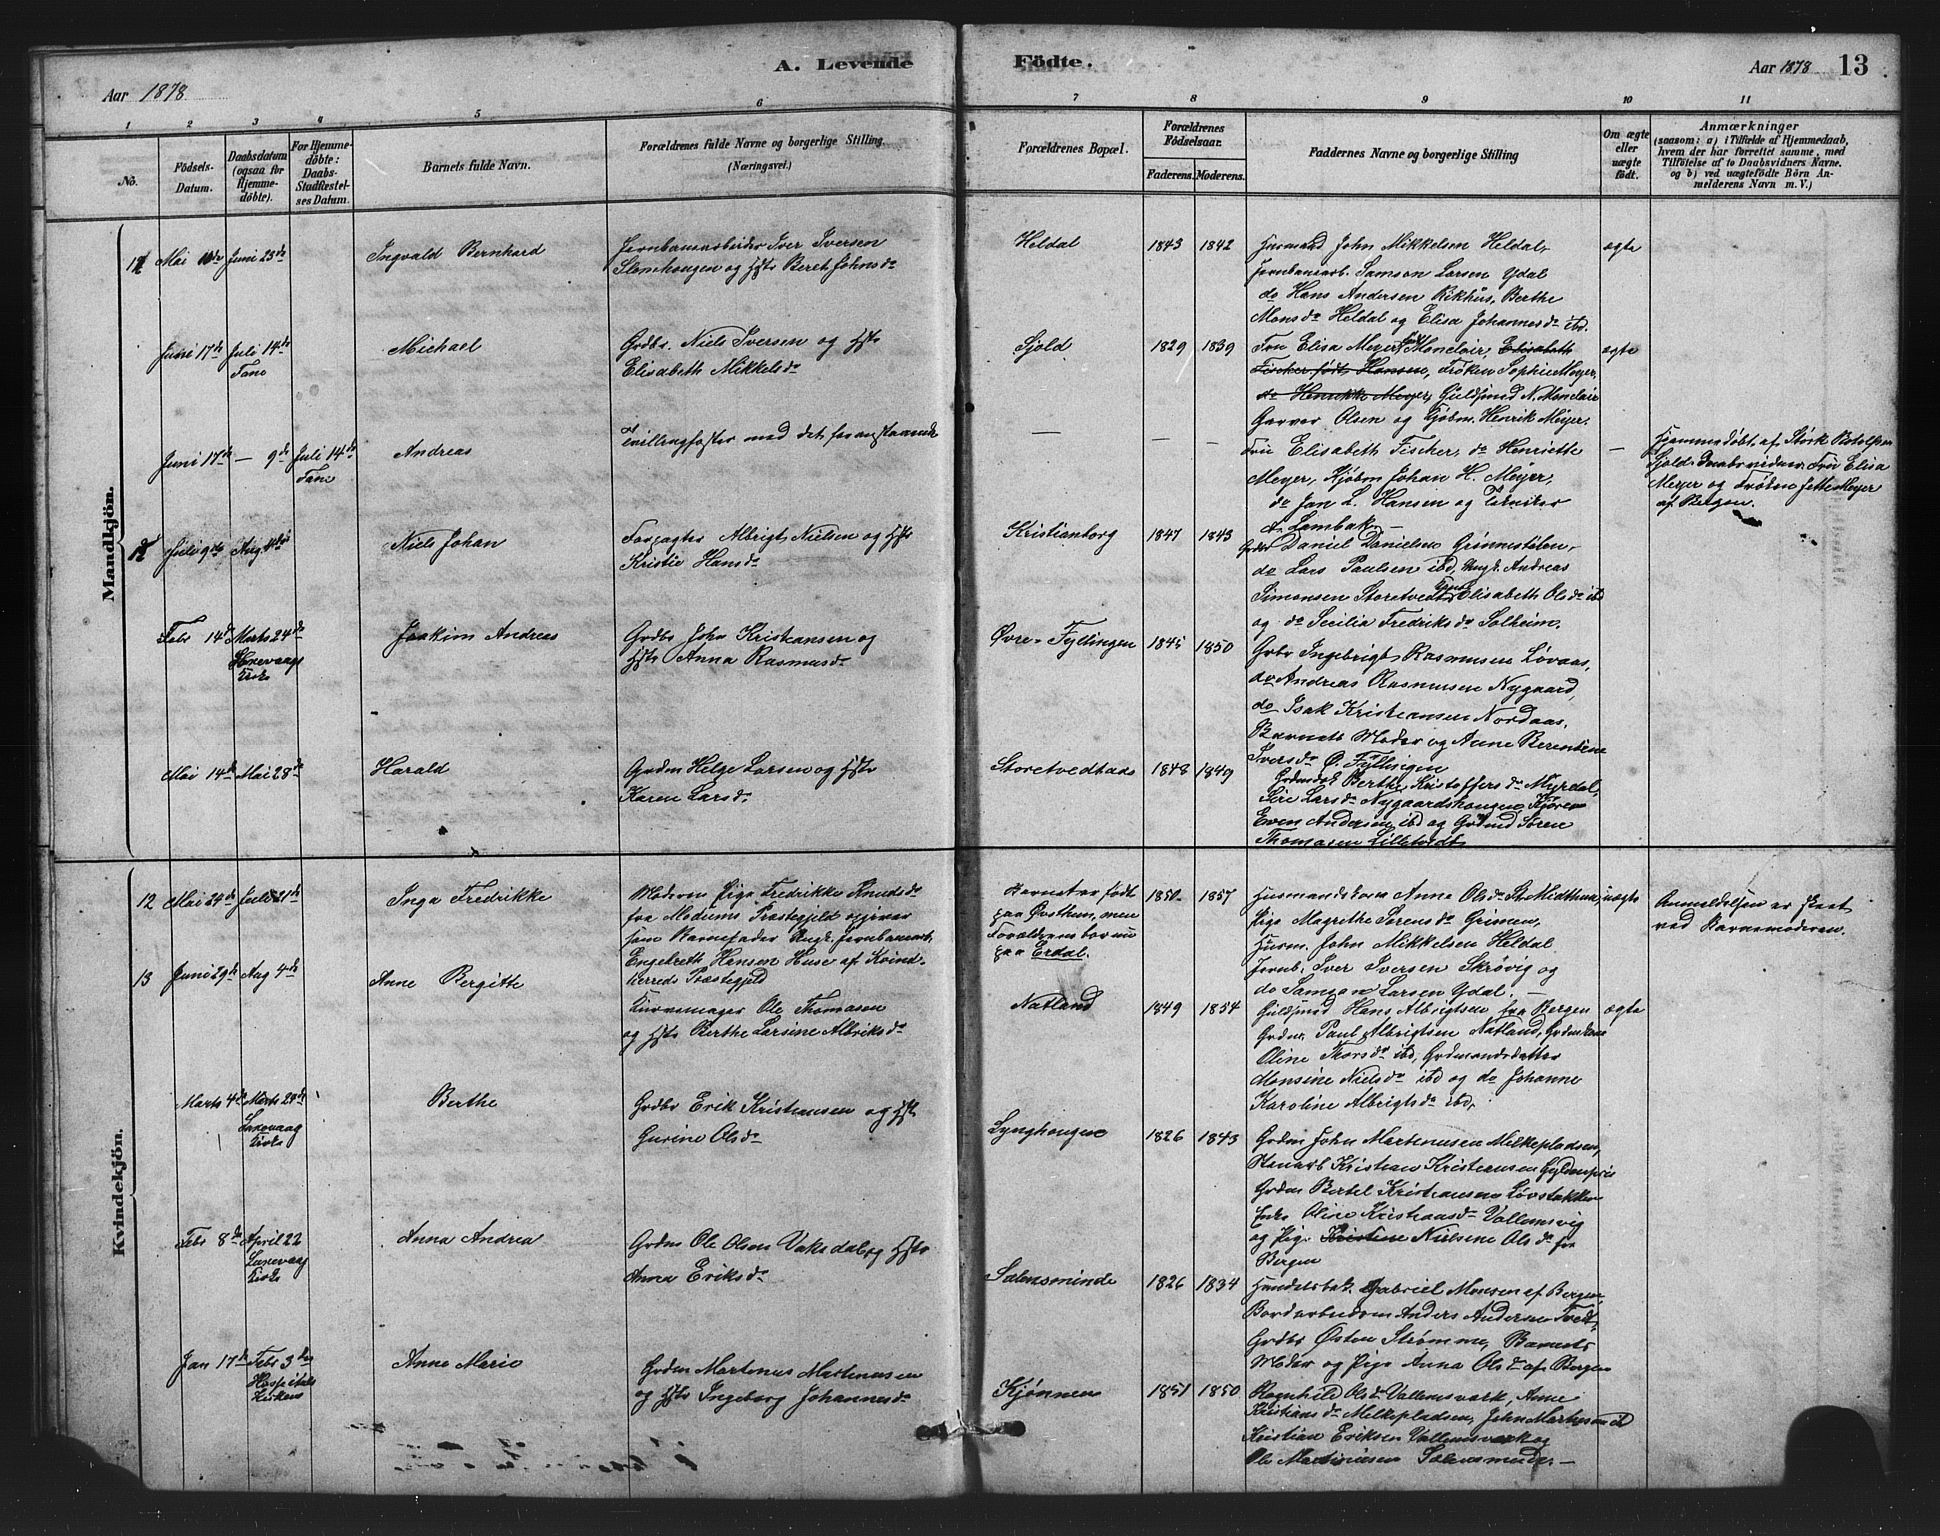 A. Levende
Födte.
Aar 1878
Aar 1878
13
1
2
3
4
5
6
7
8
9
10
11
No.
Födsels-
Datum.
Daabsdatum
(ogsaa for
Hjemme-
døbte).
For Hjemme-
døbte:
Daabs-
Stadfæstel-
ses Datum.
Barnets fulde Navn.
Forældrenes fulde Navne og borgerlige Stilling.
(Næringsvei.)
Forældrenes Bopæl.
Forældrenes
Födselsaar.
Faderens. Moderens.
Faddernes Navne og borgerlige Stilling
Om ægte
eller
uægte
født.
Anmærkninger
(saasom: a) i Tilfælde af Hjemmedaab,
hvem der har forrettet samme, med
Tilföielse af to Daabsvidners Navne,
og b) ved uægtefödte Börn An-
melderens Navn m. V.)
Mandkjön.
Mai Juni 23de
Ingvald Bernhard
Jernbanearbeider Iver Iversen
og Hst Beret Johnsdr
Heldal
1843 1842
Husmand John Mikkelsen Heldal,
Jernbanearb. Samson Larsen Ydal
do Hans Andersen Rikhus, Berthe
Monsdr Heldal og Elisa Johannesdr ibd.
ægte
Juni 17de Juli 14de
Fane
Michael
Grdbr. Niels Iversen og Hst
Elisabeth Mikkelsdr
Sjold
1829 1839
Fru Elisa Meyer født Monclair, Elisabeth
Fischer født Hansen, Frøken Sophie Meyer,
do Henrikke Meyer, Guldsmd N. Monclair
Garver Olsen og Kjøbm. Henrik Meyer.
ægte
Juni 17de — 9de Juli 14de
Fane
Andreas
Tvillingfoster med det foranstaaende
— — —
Fru Elisabeth Fischer, do Henriette
Meyer, Kjøbm Johan H. Meyer,
do Jan L. Hansen og Tekniker
Lambak. —
—
Hjemmedøbt af Størk Botolfsen
Sjold. Daabsvidner: Fru Elisa
Meyer og Frøken Jette Meyer
af Bergen.
Juli 9de Aug. 4de
Niels Johan
Forpagter Albrigt Nielsen og Hst
Kristie Hansdr
Kristianborg
1847 1843
Grdbr Daniel Danielsen Grimestølen,
do Lars Paulsen ibd, Ungk. Andreas
Simonsen Storetvedt, Elisabeth Olsdr ibd
og do Secilia Fredriksdr Solheim.
Febr 14de Marts 24de
Kirke
Joakim Andreas
Grdbr John Kristiansen og
Hst Anna Rasmusdr
Øvre-Fyllingen
1845 1850
Grbr Ingebrigt Rasmusen Løvaas,
do Andreas Rasmusen Nygaard,
do Isak Kristiansen Nordaas,
Barnets Moder og Anne Berentine
Iversdr Ø. Fyllingen
Mai 14de Mai 28de
Harald
Grdm Helge Larsen og Hst
Karen Larsdr
Storetvedtaas
1848 1849
Berthe Kristoffersdr Myrdal,
Siri Larsdr Nygaardshougen,
Even Andersen ibd og Grdmd Søren
Thomasen Lilletvedt
Kvindekjön.
12 Mai 24de Juli 21de
Inga Fredrikke
Moderen Pige Fredrikke Knudsdr
fra Modums Præstegjeld opgivar
som Barnefader Ungk. Jernbanearb.
Engebreth Hansen Huse af Kvind-
herreds Præstegjeld
Barnet er født
paa Øvsthun, men
Forældrene bor nu
paa Erdal.
1850 1857
Husmandskone Anne Olsdr St. Midthun,
Pige Magrethe Sørensdr Grimen,
Husm. John Mikkelsen Heldal
Jernb. Iver Iversen Skrøvig og
do Samson Larsen Ydal. —
uægte
Anmeldelsen er skeet
ved Barnemoderen.
13 Juni 29de Aug 4de
Anne Bergitte
Kurvemager Ole Thomasen
og Hst Berthe Larsine Albriksdr
Natland
1849 1854
Guldsmd Hans Albrigtsen fra Bergen
Grdm. Paul Albrigtsen Natland, Grdmkone
Oline Thorsdr ibd, Grdmandsdatter
Monsine Nielsdr ibd og do Johanne
Karoline Albrigtsdr ibd,
ægte
Marts 4de Marts 24de
Laxevaag
Kirke
Berthe
Grdbr Erik Kristiansen og Hst
Gurine Olsdr
Lynghougen
1826 1843
Grdm John Martinusen Melkepladsen,
Kristian Kristiansen Gyldenpris
Grdm Bertel Kristiansen Løvstakken
Enke Oline Kristiansdr Vallemsvig
og Pige Kristine Nielsine Olsdr fra
Bergen
Febr 8de April 22
Laxevaag
Kirke
Anna Andrea
Grdm Ole Olsen Vaksdal og Hst
Anna Eriksdr
Sælensminde
1826 1834
Handelsbet. Gabriel Monsen af Bergen,
Anders Andersen Tvedt,
Grdbr Østen Strømme, Barnets
Moder og Pige Anna Olsdr af Bergen
Jan 17de Febr 3de
Hospitals
Kirken
Anne Marie
Grdm Martinus Martinusen
og Hst Ingeborg Johannesdr
Kjønnen
1851 1850
Ragnhild Olsdr Vallemsvark, Anne
Kristiansdr Melkepladsen, John Martinusen ibd
Kristian Eriksen Vallemsvark og
Ole Martinusen Sælensminde. —